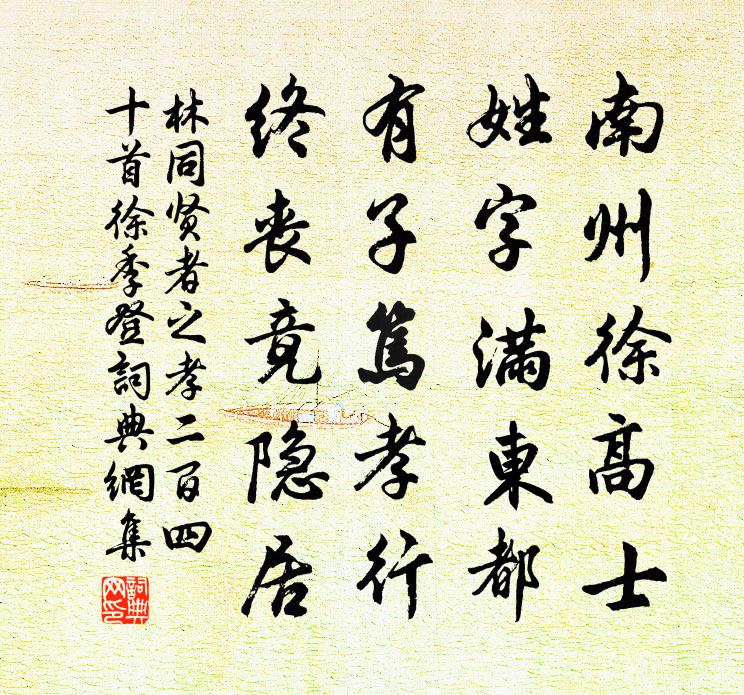 南州徐高士
姓字满東都
有子篤孝行
终丧竟隐居
林同贤者之孝二百四
十首徐季登詞典網集
詞典
网印